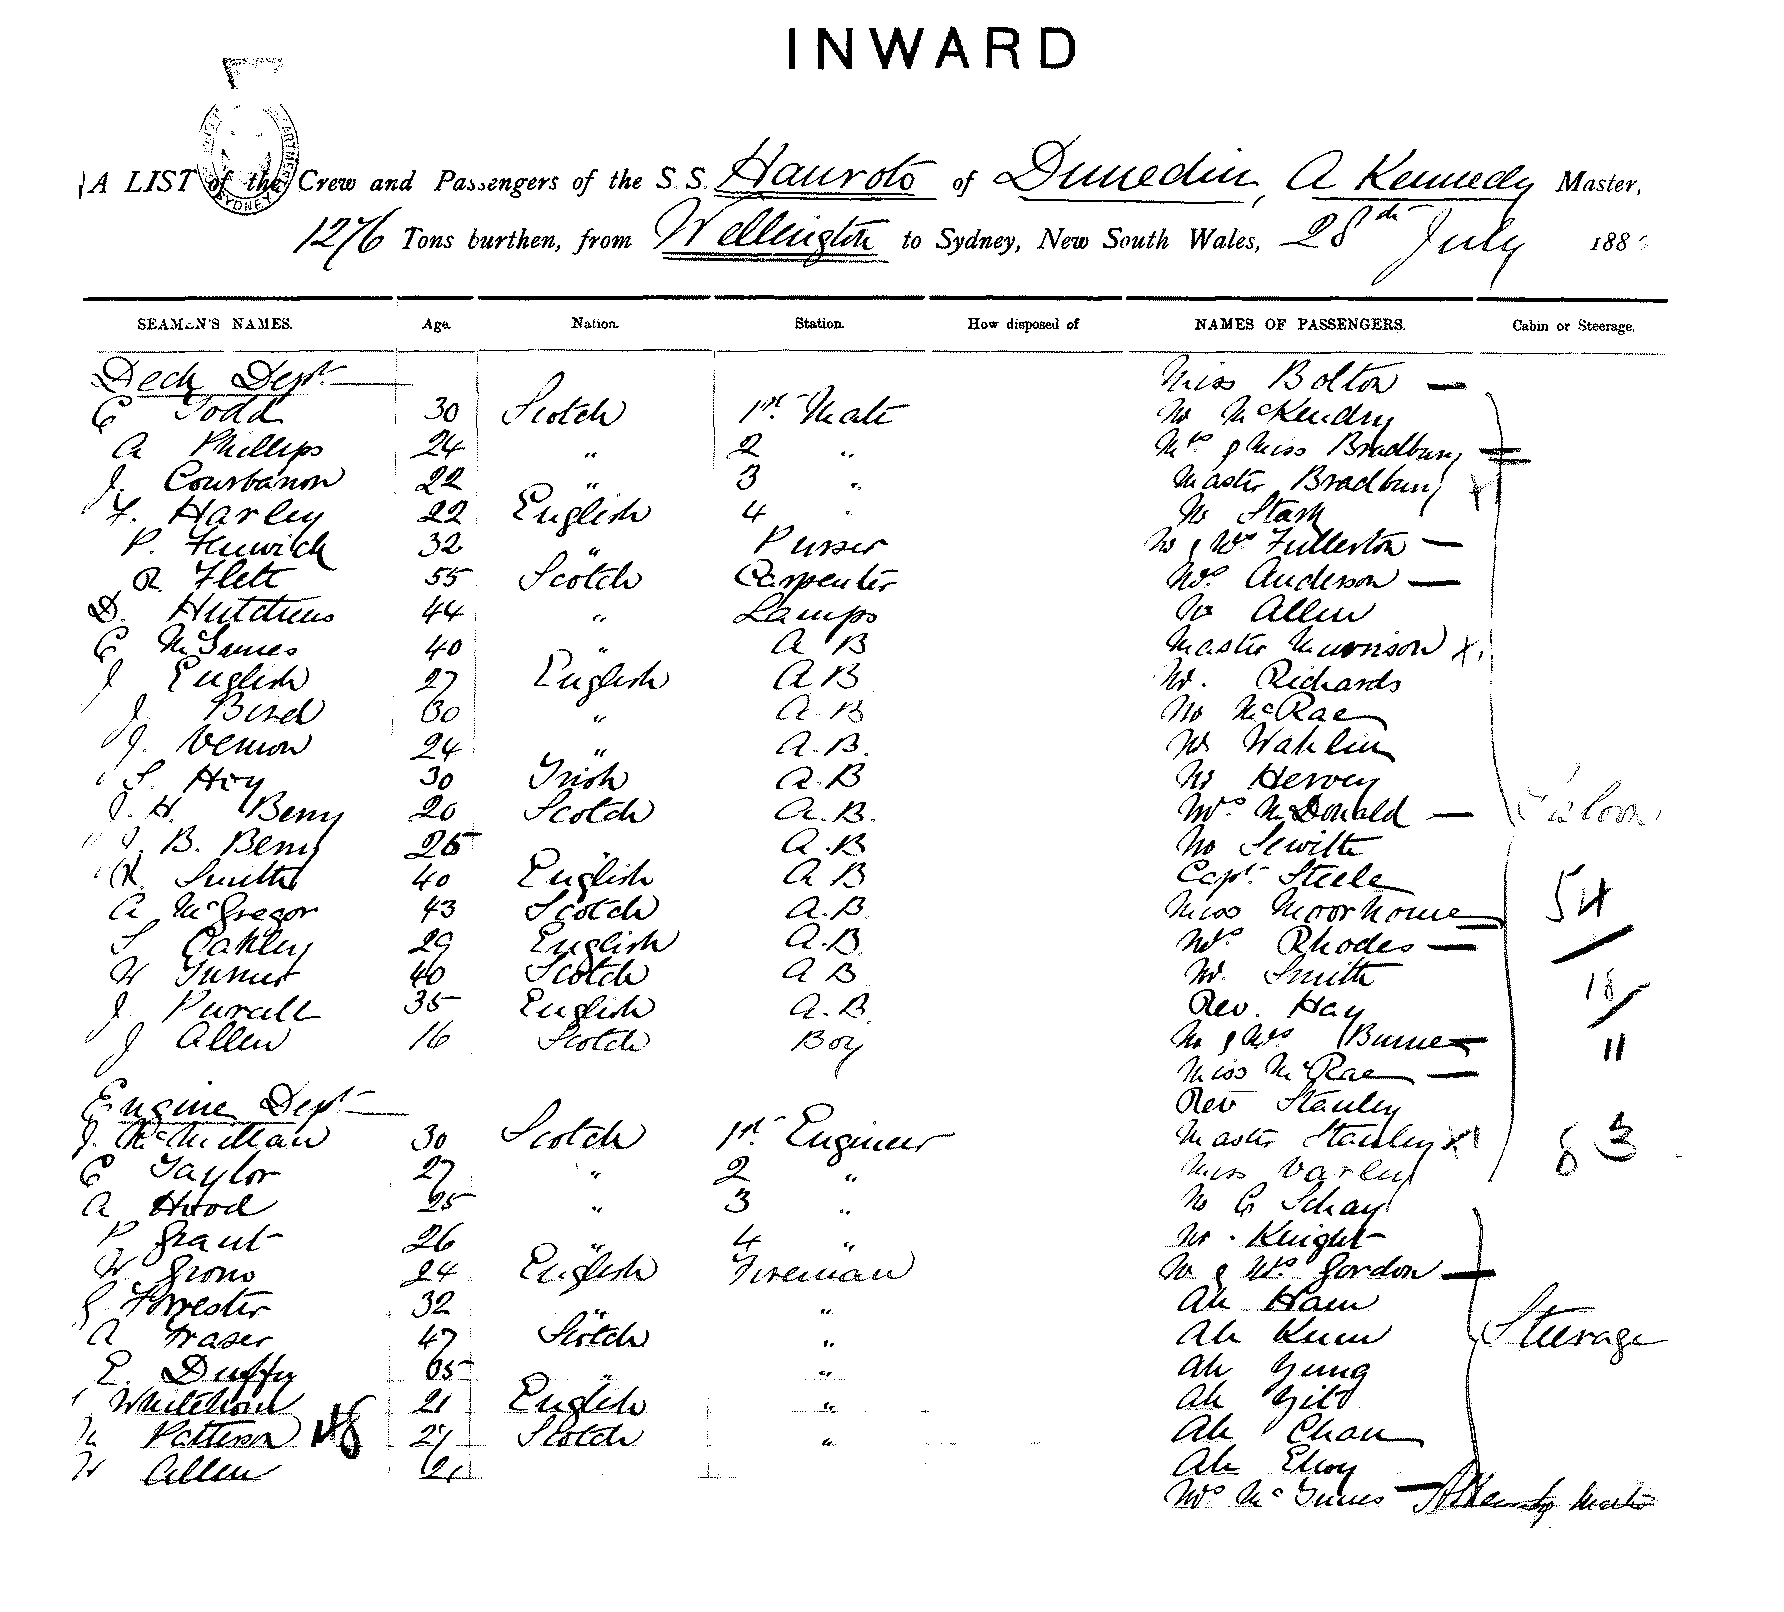 INWARD
A LIST of the Crew and Passengers of the S.S. Hauroto of Dunedin, A Kennedy Master,
1276 Tons burthen, from Wellington to Sydney, New South Wales, 28th July 188
SEAMEN'S NAMES. Age. Nation. Station. How disposed of NAMES OF PASSENGERS. Cabin or Steerage.
Deck Dept Miss Bolton —
C Todd 30 Scotch 1st Mate Mr McKendry
A Phillips 24 " 2 " Mrs & Miss Bradbury =
J. Courbanon 22 " 3 " Master Bradbury x
F. Harley 22 English 4 " Mr Stark
P. Fenwick 32 " Purser Mr & Mrs Fullerton —
R. Flett 55 Scotch Carpenter Mrs Anderson —
D. Hutchens 44 " Lamps Mr Allen
C McInnes 40 " A B Master Morrison x
J English 27 English A B Mr. Richards
J. Bird 30 " A. B Mr McRae
J. Vernon 24 " A. B. Mr Wahlin
S. Hoy 30 Irish A. B Mr Hervey
J. H. Berry 20 Scotch A. B. Mrs McDonald — Saloon
J. B. Berry 25 " A. B Mr
Smith 40 English A B Capt. Steele
A McGregor 43 Scotch A. B Miss Moorhouse — 54
S Oakley 29 English A. B. Mrs Rhodes —
W Turner 40 Scotch A B Mr. Smith 18
J. Purcell 35 English A. B. Rev. Hay
J Allen 16 Scotch Boy Mr & Mrs — 11
Miss McRae —
Engine Dept Rev Stanley
J. McMillan 30 Scotch 1st Engineer Master Stanley x 83
C Taylor 27 " 2 " Miss Varley
A Hood 25 " 3 " Mr G
P Grant 26 " 4 " Mr. Knight
W Grono 24 English Fireman Mr & Mrs Gordon —
G Forrester 32 " " Ah Ham
A Fraser 47 Scotch " Ah Kum Steerage
E. Duffy 35 " " Ah Gung
Whitehorn 21 English " Ah
Patterson 27 Scotch " Ah Chan
W Allen 21 Ah
Mrs McInnes — A Kennedy Master